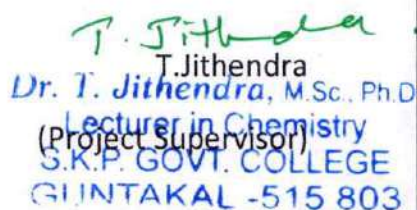 T. Jithendra
T.Jithendra
Dr. T. Jithendra, M.Sc., Ph.D
Lecturer in Chemistry
(Project Supervisor)
S.K.P. GOVT. COLLEGE
GUNTAKAL -515 803